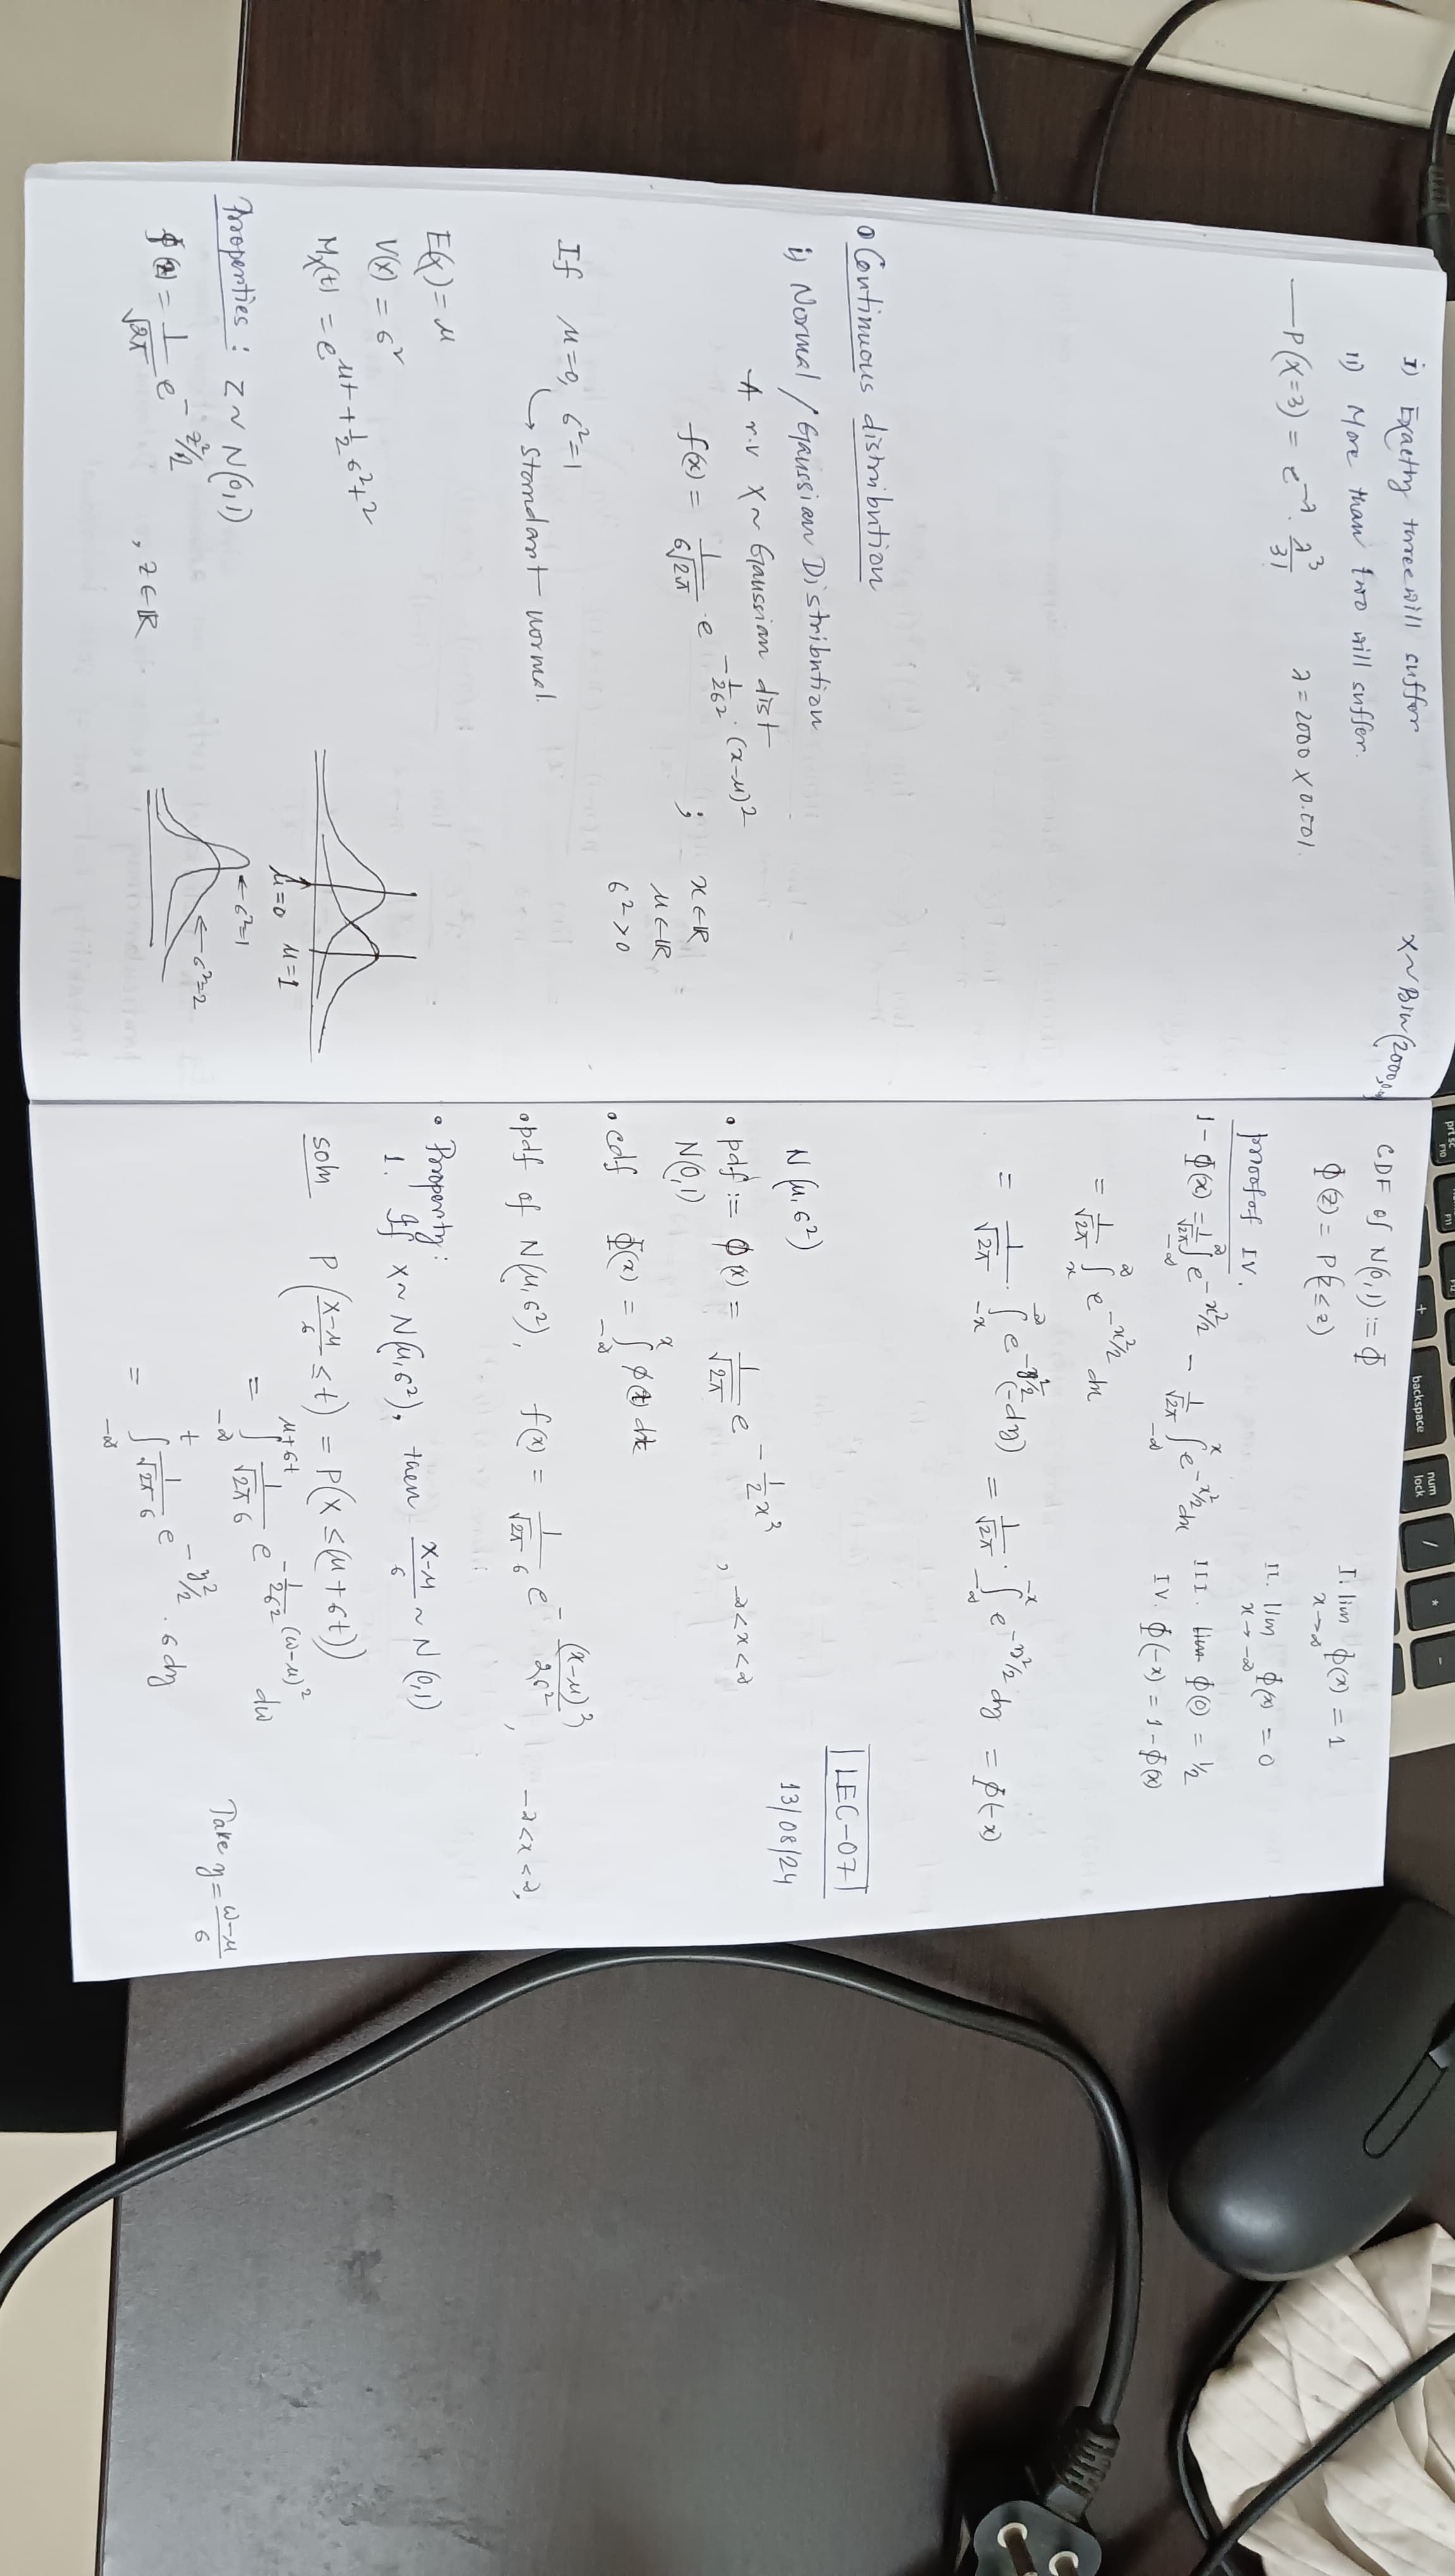 i) Exactly three will suffer
X ~ Bin(2000,
ii) More than two will suffer.
P(X=3) = e^-λ . λ^3/3!    λ = 2000 × 0.001.
• Continuous distribution
i) Normal / Gaussian Distribution
A r.v X ~ Gaussian dist
f(x) = 1/(σ√2π) . e^(-1/2σ^2 . (x-μ)^2) ; x∈ℝ
μ∈ℝ
σ^2 > 0
If μ=0, σ^2=1
↳ Standart normal.
E(x) = μ
V(x) = σ^2
M_X(t) = e^(μt + 1/2 σ^2t^2)
μ=0 μ=1
Properties : Z ~ N(0,1)
←σ^2=1
←σ^2=2
ϕ(z) = 1/√2π e^(-z^2/2) , z∈ℝ
CDF of N(0,1) := Φ
Φ(z) = P(Z ≤ z)
I. lim x→∞ ϕ(x) = 1
II. lim x→-∞ ϕ(x) = 0
III. ϕ(0) = 1/2
IV. ϕ(-x) = 1-ϕ(x)
proof of IV.
1-Φ(x) = 1/√2π ∫_-∞^∞ e^(-x^2/2) - 1/√2π ∫_-∞^x e^(-x^2/2) dx
= 1/√2π ∫_x^∞ e^(-x^2/2) dx
= 1/√2π . ∫_-x^-∞ e^(-y^2/2) (-dy) = 1/√2π . ∫_-∞^-x e^(-y^2/2) dy = ϕ(-x)
LEC-07
13/08/24
N(μ,σ^2)
• pdf := ϕ(x) = 1/√2π e^(-1/2 x^3) , -∞<x<∞
N(0,1)
• cdf Φ(x) = ∫_-∞^x ϕ(t) dt
• pdf of N(μ,σ^2), f(x) = 1/(√2π σ) e^(-(x-μ)^3/2σ^2) , -∞<x<∞.
• Property:
1. If X ~ N(μ,σ^2), then (X-μ)/σ ~ N(0,1)
soln P((X-μ)/σ ≤ t) = P(X ≤ (μ+σt))
= ∫_-∞^(μ+σt) 1/(√2π σ) e^(-1/2σ^2 (ω-μ)^2) dω
Take y = (ω-μ)/σ
= ∫_-∞^t 1/(√2π σ) e^(-y^2/2) . σ dy